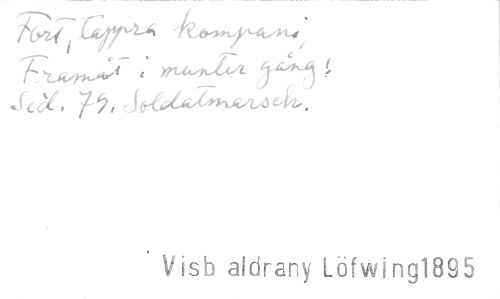 Fort, tappra kompani,
Framåt i munter gång!
Sid. 79. Soldatmarsch.
Visb aldrany Löfwing1895